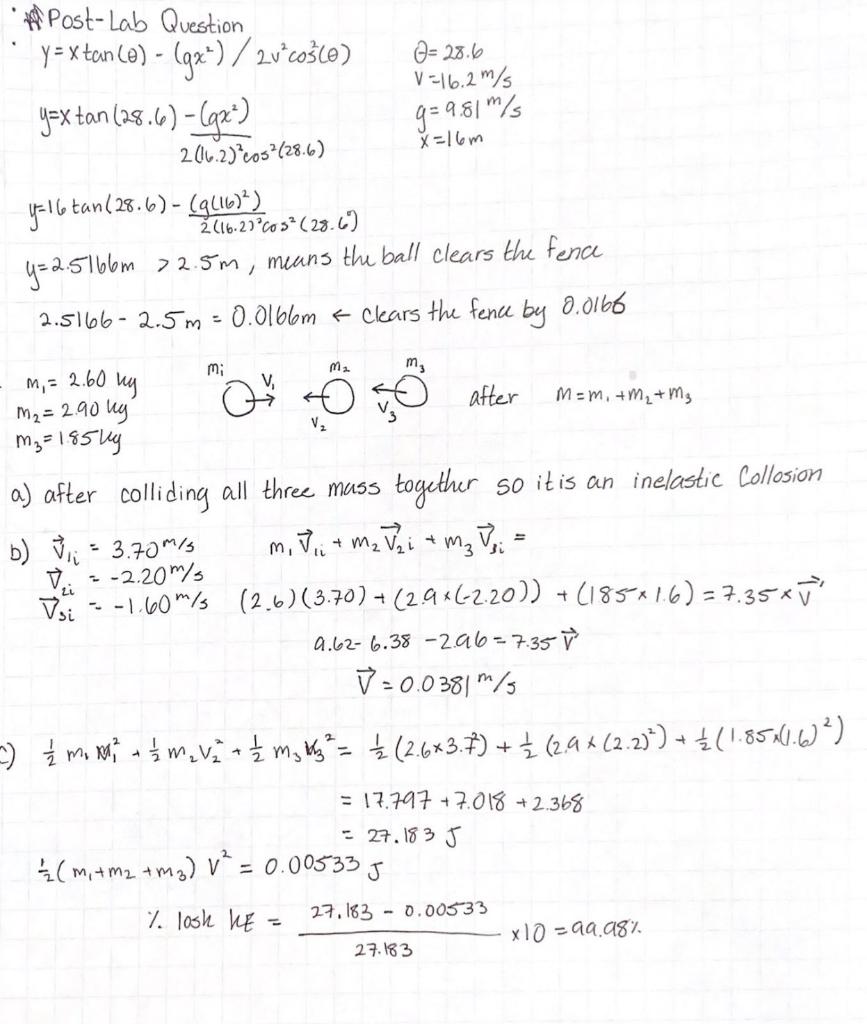 Post-Lab Question
y = x tan(θ) - (gx²) / 2v²cos²(θ)    θ = 28.6
v = 16.2 m/s
y = x tan(28.6) - (gx²)    g = 9.81 m/s
2(16.2)²cos²(28.6)    x = 16m
y = 16 tan(28.6) - (g(16)²)
2(16.2)²cos²(28.6°)
y = 2.5166m > 2.5m, means the ball clears the fence
2.5166 - 2.5m = 0.0166m ← clears the fence by 0.0166
m₁ = 2.60 kg    m₁ V₁ → ← m₂ V₂ ← m₃ V₃    after    M = m₁ + m₂ + m₃
m₂ = 2.90 kg
m₃ = 1.85 kg
a) after colliding all three mass together so it is an inelastic Collosion
b) V⃗₁ᵢ = 3.70 m/s    m₁V⃗₁ᵢ + m₂V⃗₂ᵢ + m₃V⃗₃ᵢ =
V⃗₂ᵢ = -2.20 m/s
V⃗₃ᵢ = -1.60 m/s    (2.6)(3.70) + (2.9 × (-2.20)) + (1.85 × 1.6) = 7.35 × V⃗'
9.62 - 6.38 - 2.96 = 7.35 V⃗
V⃗ = 0.0381 m/s
c) ½ m₁ V₁² + ½ m₂V₂² + ½ m₃ V₃² = ½ (2.6×3.7²) + ½ (2.9 × (2.2)²) + ½ (1.85×(1.6)²)
= 17.797 + 7.018 + 2.368
= 27.183 J
½ (m₁ + m₂ + m₃) V² = 0.00533 J
% losh KE = 27.183 - 0.00533
27.183    ×10 = 99.98%